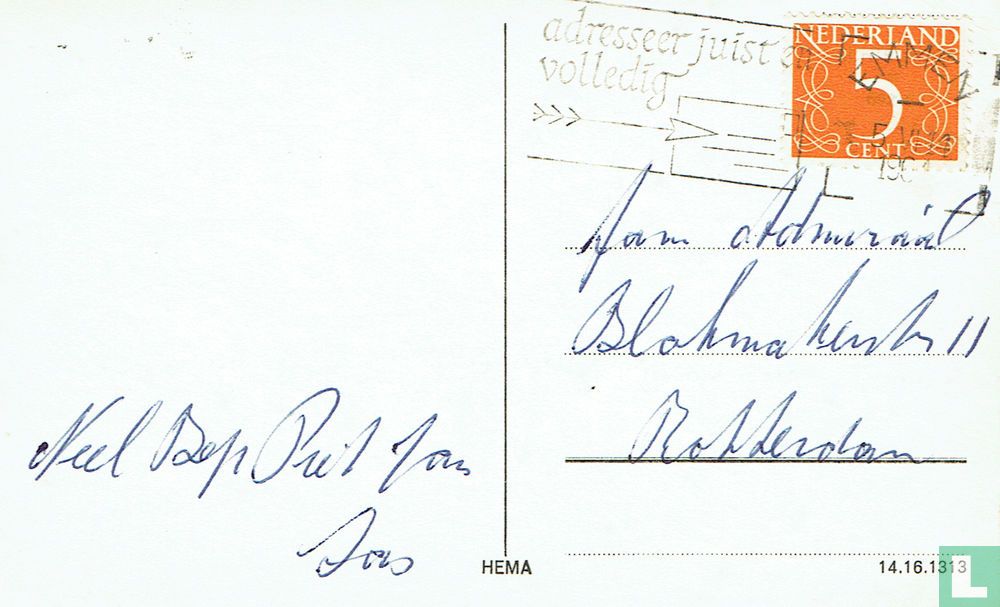 adresseer juist en
volledig
NEDERLAND
5
CENT
EMMEN
5 VIII
Fam Admiraal
Blokmakerstr 11
Rotterdam
Neel Bep Piet Jan
Jos
HEMA
14.16.1313
L